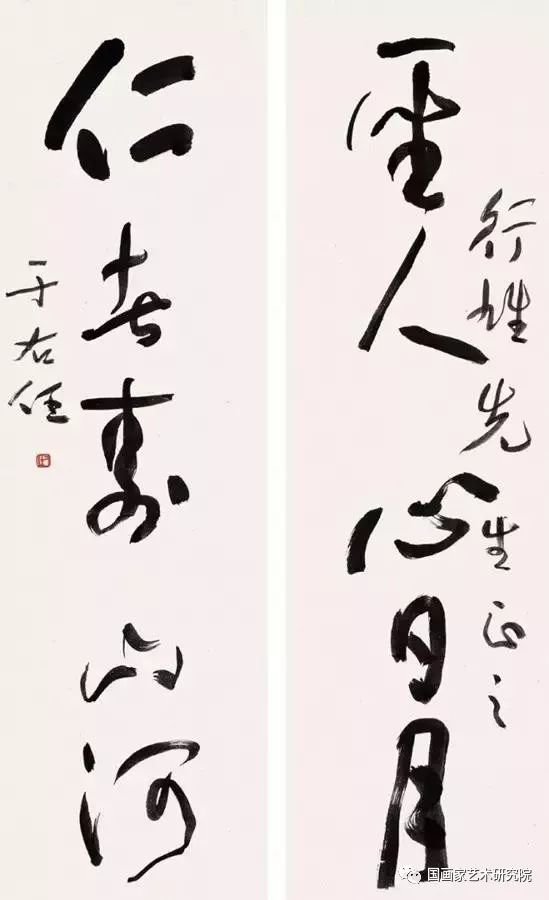 聖人心日月
行雄先生正之
仁者壽山河
于右任
国画家艺术研究院